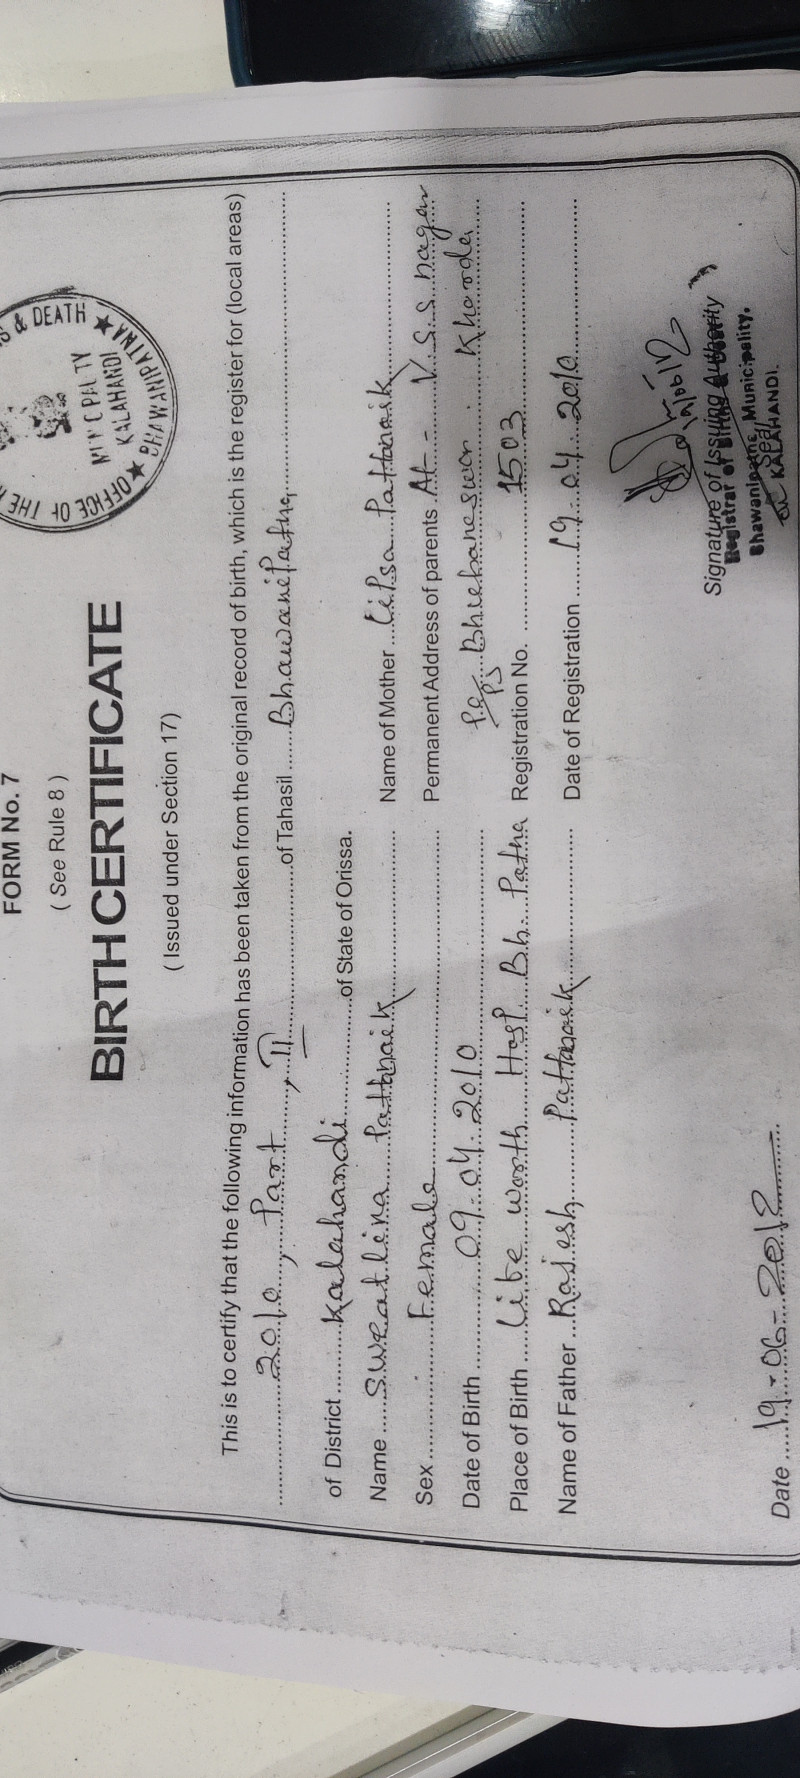 FORM No. 7
( See Rule 8 )
BIRTH CERTIFICATE
( Issued under Section 17)
& DEATH ★
MUNCPALTY
KALAHANDI
★ BHAWANIPATNA
OFFICE OF THE
This is to certify that the following information has been taken from the original record of birth, which is the register for (local areas)
2010, Part, II of Tahasil Bhawanipatna
of District Kalahandi of State of Orissa.
Name Sweatlina Pattnaik Name of Mother Lipsa Pattnaik
Sex Female Permanent Address of parents At - V.S.S. nagar
Date of Birth 09-04-2010 Po/PS Bhubaneswer. Khorda
Place of Birth Life worth Hosp. Bh. Patna Registration No. 1503
Name of Father Rajesh Pattnaik Date of Registration 19-04-2010
Signature of Issuing Authority
Registrar of Births & Death
Bhawanipatna Municipality.
Seal
KALAHANDI.
Date 19-06-2012